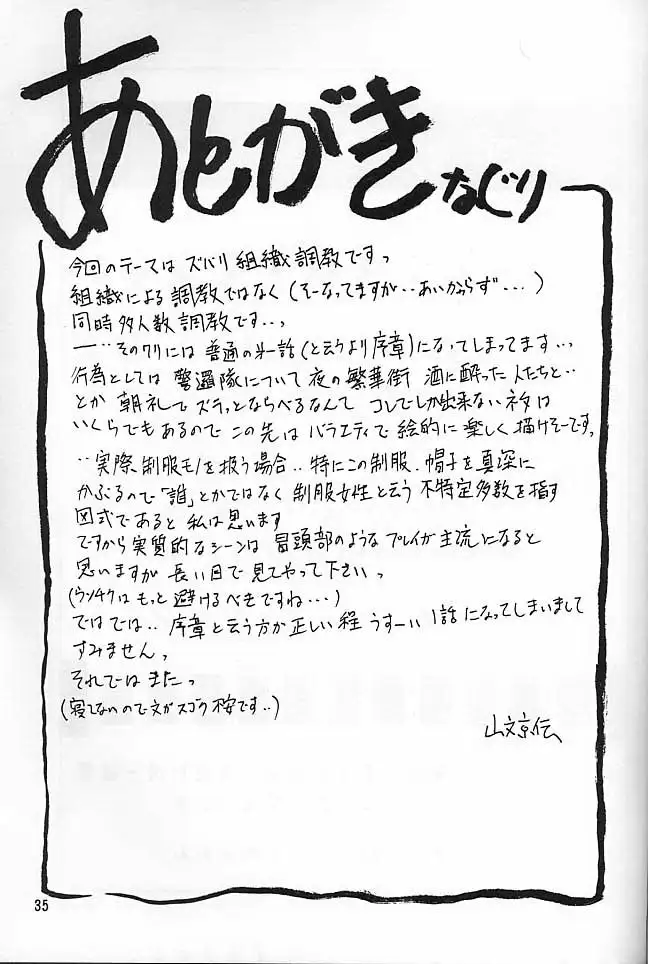 あとがき なぐり
今回のテーマは ズバリ 組織調教ですっ
組織による 調教ではなく(そーなってますが‥あいかわらず‥‥)
同時多人数調教です‥っ
一‥そのワリには 普通の第一話(と云うより序章)になってしまってます‥っ
行為としては 警邏隊について 夜の繁華街 酒に酔った人たちと‥
とか 朝礼で ズラッとならべるなんて コレでしか出来ないネタは
いくらでもあるので この先は バラエティで 絵的に 楽しく描けそーですっ
‥実際、制服モノを扱う場合‥特にこの制服、帽子を真深に
かぶるので「誰」とかではなく 制服女性と云う 不特定多数を指す
図式であると 私は思います
ですから 実質的なシーンは 冒頭部のような プレイが主流になると
思いますが 長い目で 見てやって下さいっ
(ウンチクは もっと 避けるべきですね‥‥)
ではでは‥ 序章と云う方が正しい程 うすーい 1話になってしまいまして
すみません、
それでは またっ
(寝てないので 文がスゴク 変です‥)
山文京伝
35